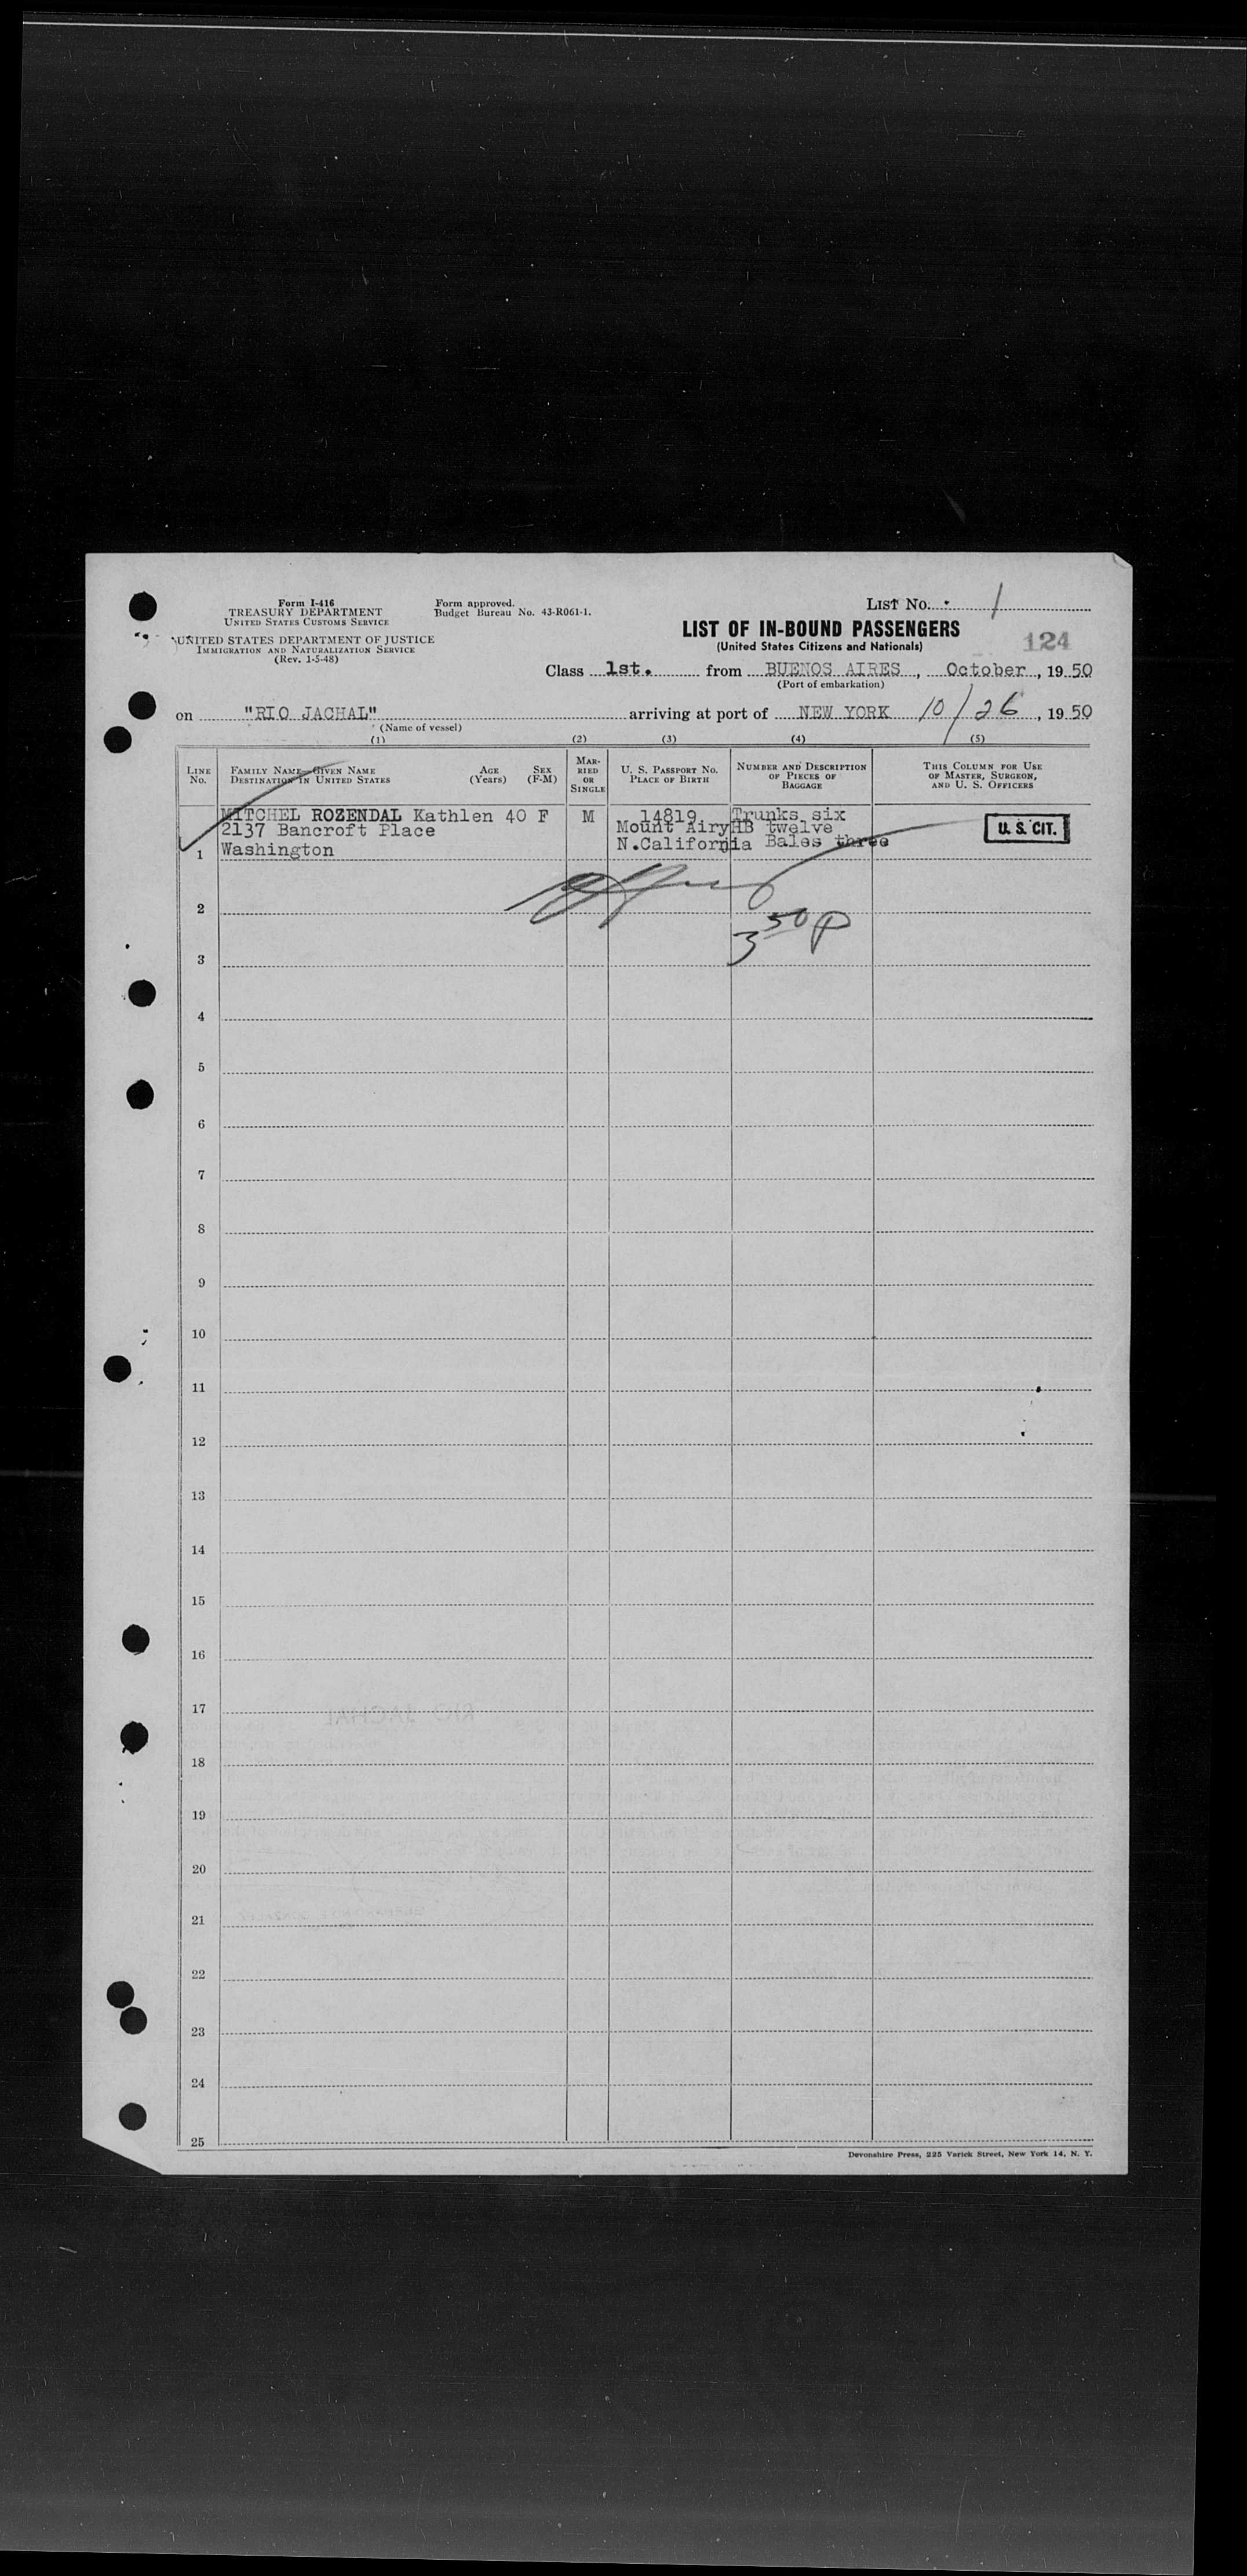 Form I-416
TREASURY DEPARTMENT
UNITED STATES CUSTOMS SERVICE
UNITED STATES DEPARTMENT OF JUSTICE
IMMIGRATION AND NATURALIZATION SERVICE
(Rev. 1-5-48)
Form approved.
Budget Bureau No. 43-R061-1.
LIST No. 1
LIST OF IN-BOUND PASSENGERS
(United States Citizens and Nationals)
124
Class 1st. from BUENOS AIRES, October, 1950
(Port of embarkation)
on "RIO JACHAL" arriving at port of NEW YORK 10/26, 1950
(Name of vessel)
(1) (2) (3) (4) (5)
LINE No.
FAMILY NAME—GIVEN NAME
DESTINATION IN UNITED STATES
AGE (Years)
SEX (F-M)
MARRIED OR SINGLE
U. S. PASSPORT No.
PLACE OF BIRTH
NUMBER AND DESCRIPTION OF PIECES OF BAGGAGE
THIS COLUMN FOR USE OF MASTER, SURGEON, AND U. S. OFFICERS
MITCHEL ROZENDAL Kathlen 40 F M 14819 Trunks six
2137 Bancroft Place Mount Airy HB twelve U. S. CIT.
1 Washington N.California Bales three
2
3 50 p
3
4
5
6
7
8
9
10
11
12
13
14
15
16
17
RIO JACHAL
18
19
20
21
22
23
24
25
Devonshire Press, 225 Varick Street, New York 14, N. Y.